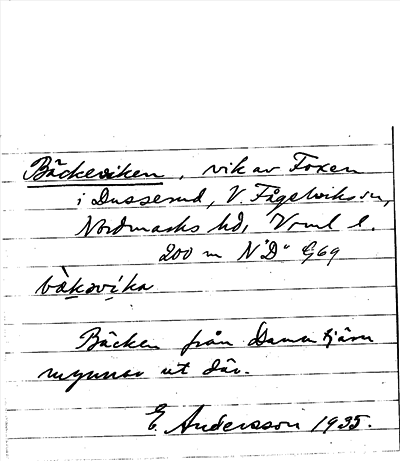 Bäckeviken, vik av Foxen
i Dusserud, V. Fågelviks sn,
Nordmarks hd, Vrml l.
200 m N "D" G69
bäkəvika
Bäcken från Damm tjärn
mynnar ut där.
E. Andersson 1935.